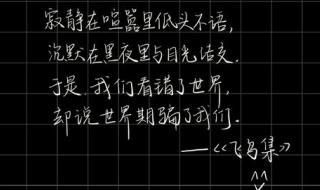 寂静在喧嚣里低头不语,
沉默在黑夜里与目光结交.
于是,我们看错了世界,
却说世界欺骗了我们.
——《飞鸟集》